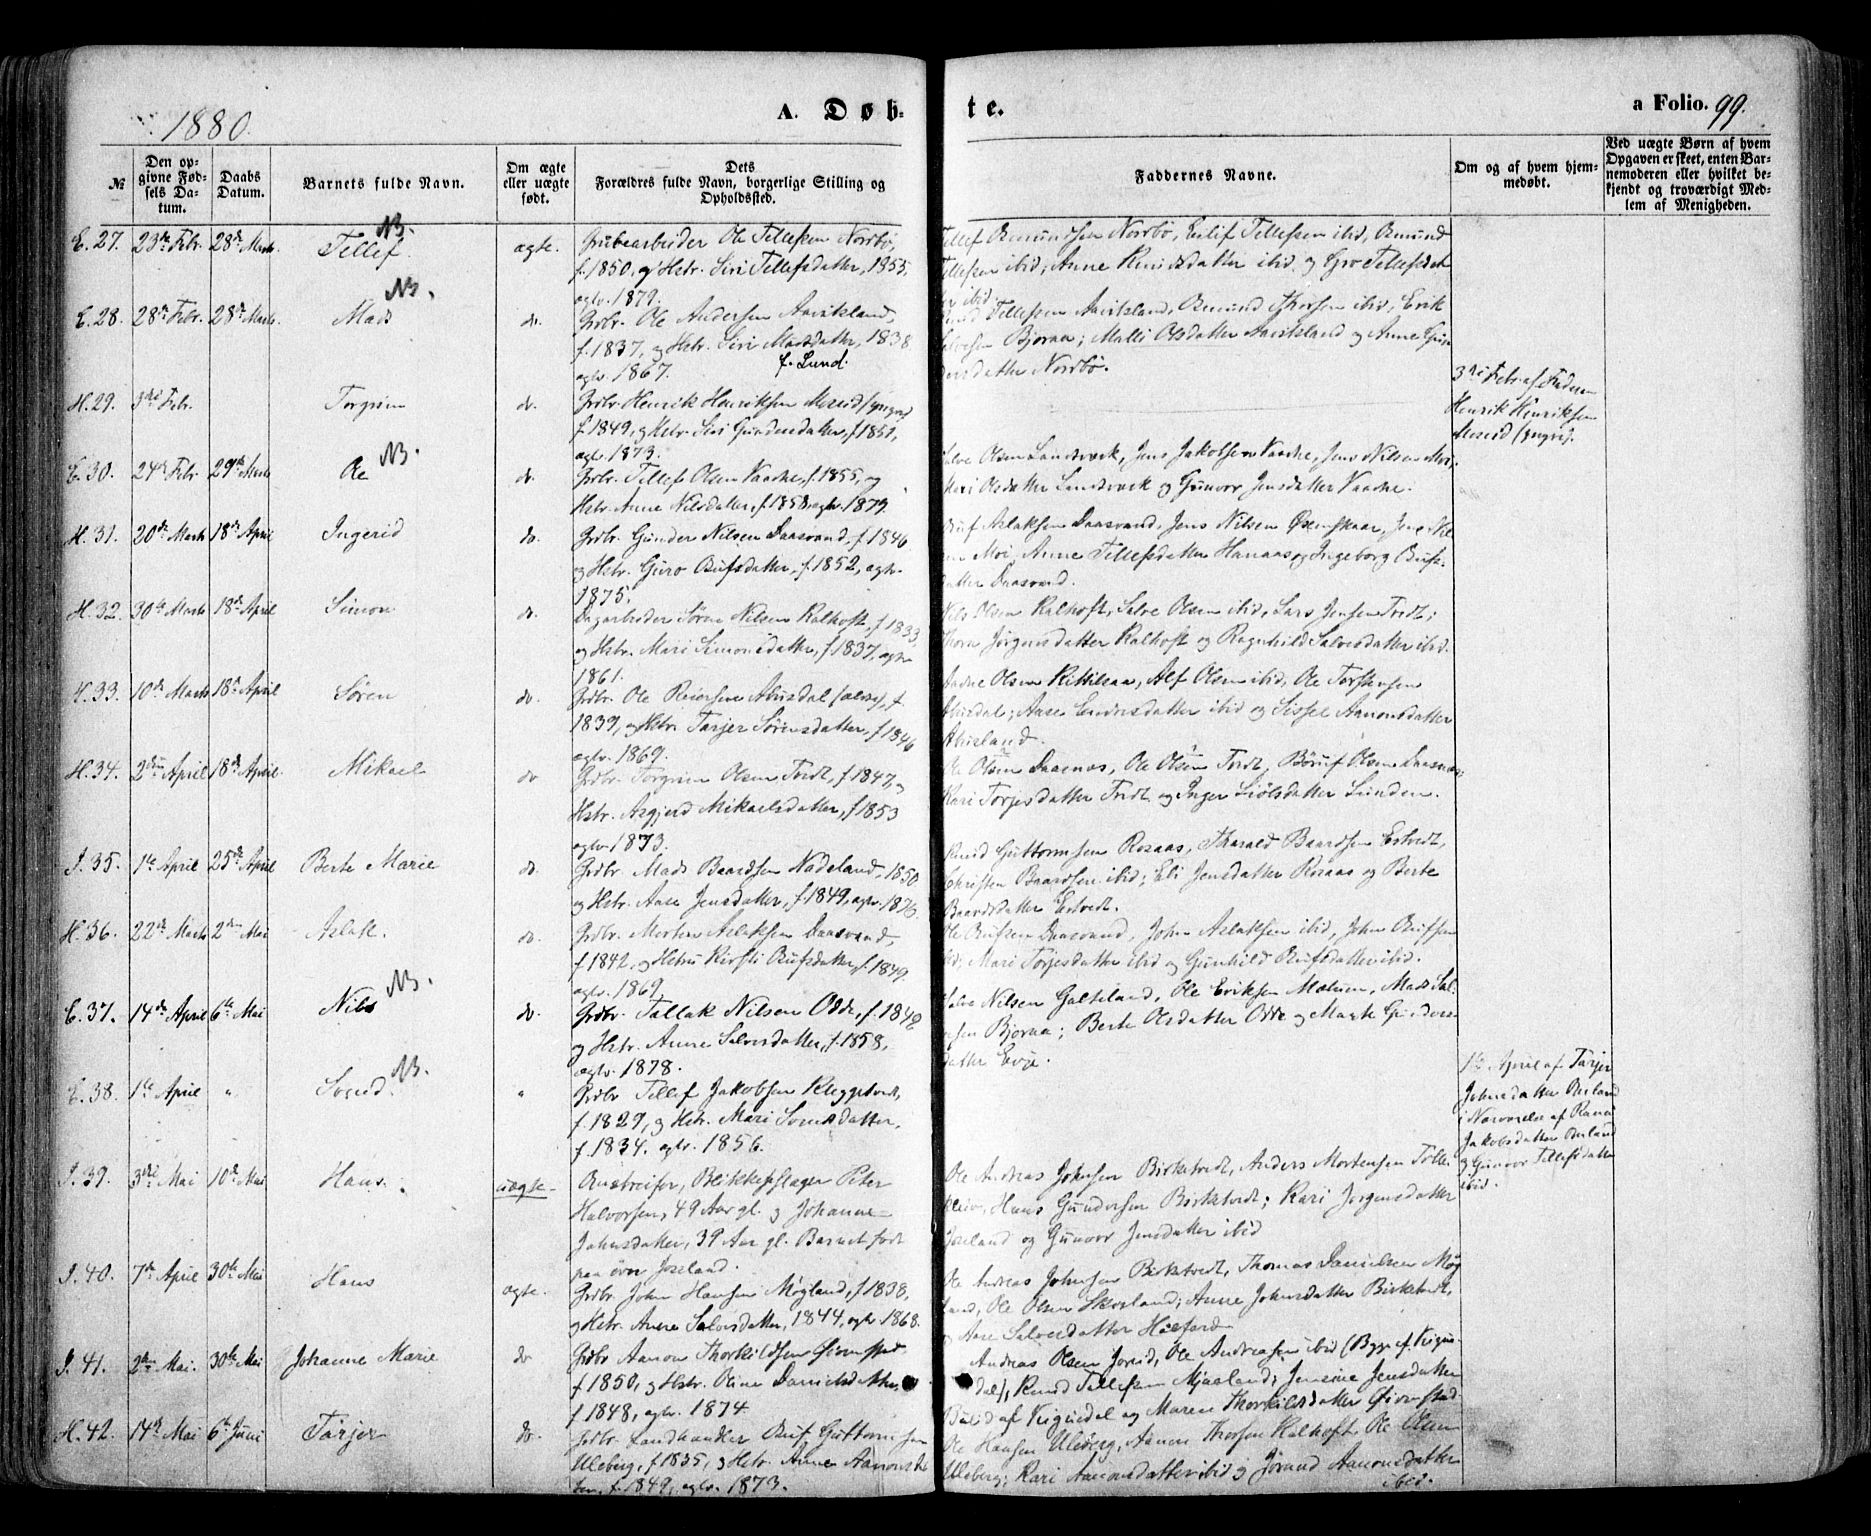 1880.
A. Døb-
te.
a Folio. 99.
№
Den op-
givne Fød-
sels Da-
tum.
Daabs
Datum.
Barnets fulde Navn.
Om ægte
eller uægte
født.
Dets
Forældres fulde Navn, borgerlige Stilling og
Opholdssted.
Faddernes Navne.
Om og af hvem hjem-
medøbt.
Ved uægte Børn af hvem
Opgaven er skeet, enten Bar-
nemoderen eller hvilket be-
kjendt og troværdigt Med-
lem af Menigheden.
E. 27. 23de Febr. 28de Marts Tellef NB. ægte. Grubearbeider Ole Tellefsen Nordbø,
f. 1850, og Hstr. Siri Tellefsdatter, 1855,
ægtv. 1879.
Tellef Osmundsen Nordbø, Eilif Tellefsen ibid, Osmund
Tellefsen ibid; Anne Knudsdatter ibid og Gro Tellefsdat-
ter ibid.
E. 28. 28de Febr. 28de Marts Mads NB. do. Grdbr. Ole Andersen Aavitsland,
f. 1837, og Hstr. Siri Madsdatter, 1838
f. Lund.
ægtv. 1867.
Tellefsen Aavitsland, Osmund Thorsen ibid, Erik
Salvesen Bjoraa; Malli Olsdatter Aavitsland og Anne
datter Nordbø.
H. 29. 3die Febr. Torgrim do. Grdbr. Henrik Henriksen Moseid (yngre)
f. 1849, og Hstr. Siri Gundersdatter, f. 1851,
ægtv. 1873.
3die Febr. af Faderen
Henrik Henriksen
Moseid (yngre).
E. 30. 24de Febr. 29de Marts Ole NB. do. Grdbr. Tellef Olsen Vaadne, f. 1855, og
Hstr. Anne Nilsdatter, f. 1858, ægtv. 1879.
Salve Olsen Landsværk, Jens Jakobsen Vaadne, Jens Nilsen Moi,
Mari Olsdatter Landsværk og Gunvor Jensdatter Vaadne.
H. 31. 20de Marts 18de April Ingerid do. Grdbr. Gunder Nilsen Daasvand, f. 1846
og Hstr. Guro Bufsdatter, f. 1852, ægtv.
1875.
Buf Aslaksen Daasvand, Jens Nilsen Øsenskaar, Jens Nil-
sen Moi, Anne Tellefsdatter Hanaas og Ingeborg Bufs-
datter Daasvand.
H. 32. 30te Marts 18de April Simon do. Dagarbeider Søren Nilsen Kalhoft, f. 1833,
og Hstr. Mari Simonsdatter, f. 1837, ægtv.
1861.
Nils Olsen Kalhoft, Salve Olsen ibid, Lars Jensen Tveit;
Thore Jørgensdatter Kalhoft og Ragnhild Salvesdatter ibid.
H. 33. 10de Marts 18de April Søren do. Grdbr. Ole Reiersen Abusdal (ældre), f.
1839, og Hstr. Tarjer Sørensdatter, f. 1846
ægtv. 1869.
Aadne Olsen Kittilsaa, Alf Olsen ibid, Ole Torstensen
Abusdal; Aase Endresdatter ibid og Sissel Aanonsdatter
Abusland.
H. 34. 2den April 18de April Mikael do. Grdbr. Torgrim Olsen Tveit, f. 1847, og
Hstr. Asgjerd Mikaelsdatter, f. 1853
ægtv. 1873.
Ole Olsen Daasnes, Ole Olsen Tveit, Børuf Olsen Daasnes;
Kari Torjesdatter Tveit og Inger Siølsdatter Lunden.
I. 35. 1ste April 25de April Berte Marie do. Grdbr. Mads Baardsen Nadeland, 1850
og Hstr. Aase Jensdatter, f. 1849, ægtv. 1876.
Knud Guttormsen Rosaas, Tharald Baardsen Estvedt,
Christen Baardsen ibid; Eli Jensdatter Rosaas og Berte
Baardsdatter Estvedt.
H. 36. 22de Marts 2den Mai Aslak. do. Grdbr. Morten Aslaksen Daasvand,
f. 1842, og Hstru Kirsti Bufsdatter, f. 1849.
ægtv. 1869.
Ole Bufsen Daasvand, John Aslaksen ibid, John Bufsen
ibid; Mari Torjesdatter ibid og Gunhild Bufsdatter ibid.
E. 37. 14de April 6te Mai Nils NB. do. Grdbr. Tallak Nilsen Odde, f. 1848
og Hstr. Anne Salvesdatter, f. 1858,
ægtv. 1878.
Salve Nilsen Galteland, Ole Eriksen Mælum, Mads Sal-
vesen Bjoraa; Berte Olsdatter Odde og Marte Gunders-
datter Evje.
E. 38. 1ste April " Svend NB. " Grdbr. Tellef Jakobsen Kleggetveit,
f. 1829, og Hstr. Mari Svendsdatter,
f. 1834. ægtv. 1856.
1ste April af Tarjer
Johnsdatter Berland
i Nærværelse af
Jakobsdatter Berland
og Gunvor Tellefsdatter
ibid.
I. 39. 3die Mai 10de Mai Hans. uægte. Omstreifer, Blikkenslager Peter
Halvorsen, 49 Aar gl. og Johanne
Johnsdatter, 39 Aar gl. Barnet født
paa øvre Joreland.
Ole Andreas Johnsen Birketvedt, Anders Mortensen Tølle-
kleiv, Hans Gundersen Birketvedt; Kari Jørgensdatter
Joreland og Gunvor Jensdatter ibid
I. 40. 7de April 30te Mai Hans ægte. Grdbr. John Hansen Møgland, f. 1838,
og Hstr. Anne Salvesdatter, 1844, ægtv. 1868.
Ole Andreas Johnsen Birketvedt, Thomas Danielsen Møg-
land, Ole Olsen Skovland; Anne Johnsdatter Birketvedt,
og Aase Salvesdatter
I. 41. 2den Mai. 30te Mai Johanne Marie do Grdbr. Aanon Thorkildsen Øvernstad
f. 1850, og Hstr. Oline Danielsdatter,
f. 1848, ægtv. 1874.
Andreas Olsen Joreid, Ole Andreassen ibid (Bygl af Vegus-
dal), Knud Tellefsen Mjaaland; Jensine Jensdatter
af Vegusdal og Maren Thorkildsdatter Øvernstad.
H. 42. 14de Mai 6te Juni Tarjer do. Grdbr. Landhandler Buf Guttormsen
Uleberg, f. 1835, og Hstr. Anne Aanonsdat-
ter, f. 1849, ægtv. 1873.
Ole Hansen Uleberg, Aanon Thorsen Kalhoft, Ole Olsen
Uleberg; Kari Aanonsdatter ibid og Jorand Aanonsdatter
ibid.